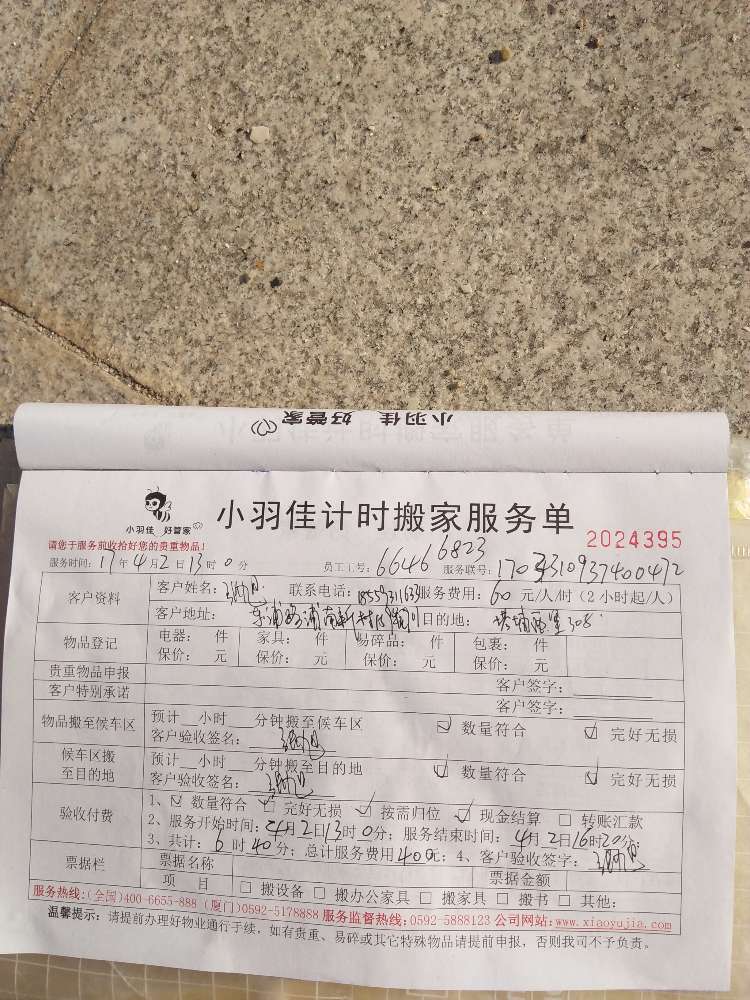 小羽佳 好管家
小羽佳 好管家
小羽佳计时搬家服务单
2024395
请您于服务前收拾好您的贵重物品!
服务时间: 17年4月2日13时0分 员工工号: 66466823 服务联号:
客户资料 客户姓名: 联系电话: 服务费用: 60元/人/时(2小时起/人)
客户地址: 目的地:
物品登记 电器: 件 家具: 件 易碎品: 件 包裹: 件
保价: 元 保价: 元 保价: 元 保价: 元
贵重物品申报 客户签字:
客户特别承诺 客户签字:
物品搬至候车区 预计__小时__分钟搬至候车区 ☑ 数量符合 ☑ 完好无损
客户验收签名:
候车区搬至目的地 预计__小时__分钟搬至目的地 ☑ 数量符合 ☑ 完好无损
客户验收签名:
验收付费 1、☑ 数量符合 ☑ 完好无损 ☑ 按需归位 ☑ 现金结算 □ 转账汇款
2、服务开始时间: 4月2日13时0分; 服务结束时间: 4月2日16时20分;
3、共计: 6时40分; 总计服务费用400元; 4、客户验收签字:
票据栏 票据名称 票据金额
项 目 □ 搬设备 □ 搬办公家具 □ 搬家具 □ 搬书 □ 其他:
服务热线:(全国)400-6655-888 (厦门)0592-5178888 服务监督热线:0592-5888123 公司网站:www.xiaoyujia.com
温馨提示: 请提前办理好物业通行手续, 如有贵重、易碎或其它特殊物品请提前申报, 否则我司不予负责。